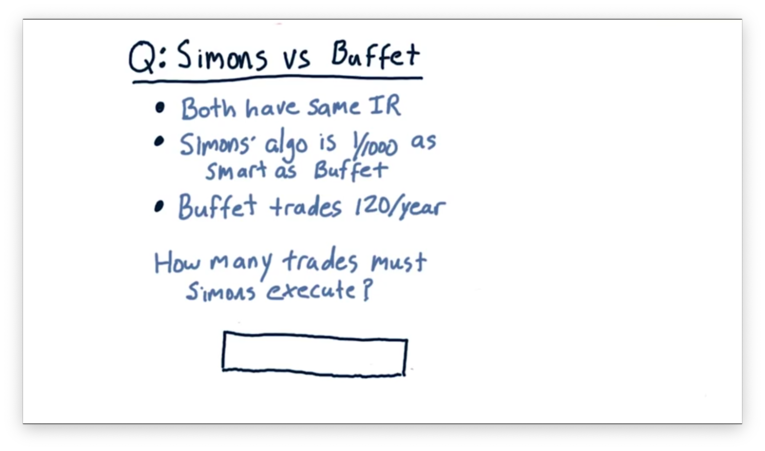 Q: Simons vs Buffet
• Both have same IR
• Simons' algo is 1/1000 as
smart as Buffet
• Buffet trades 120/year
How many trades must
Simons execute?